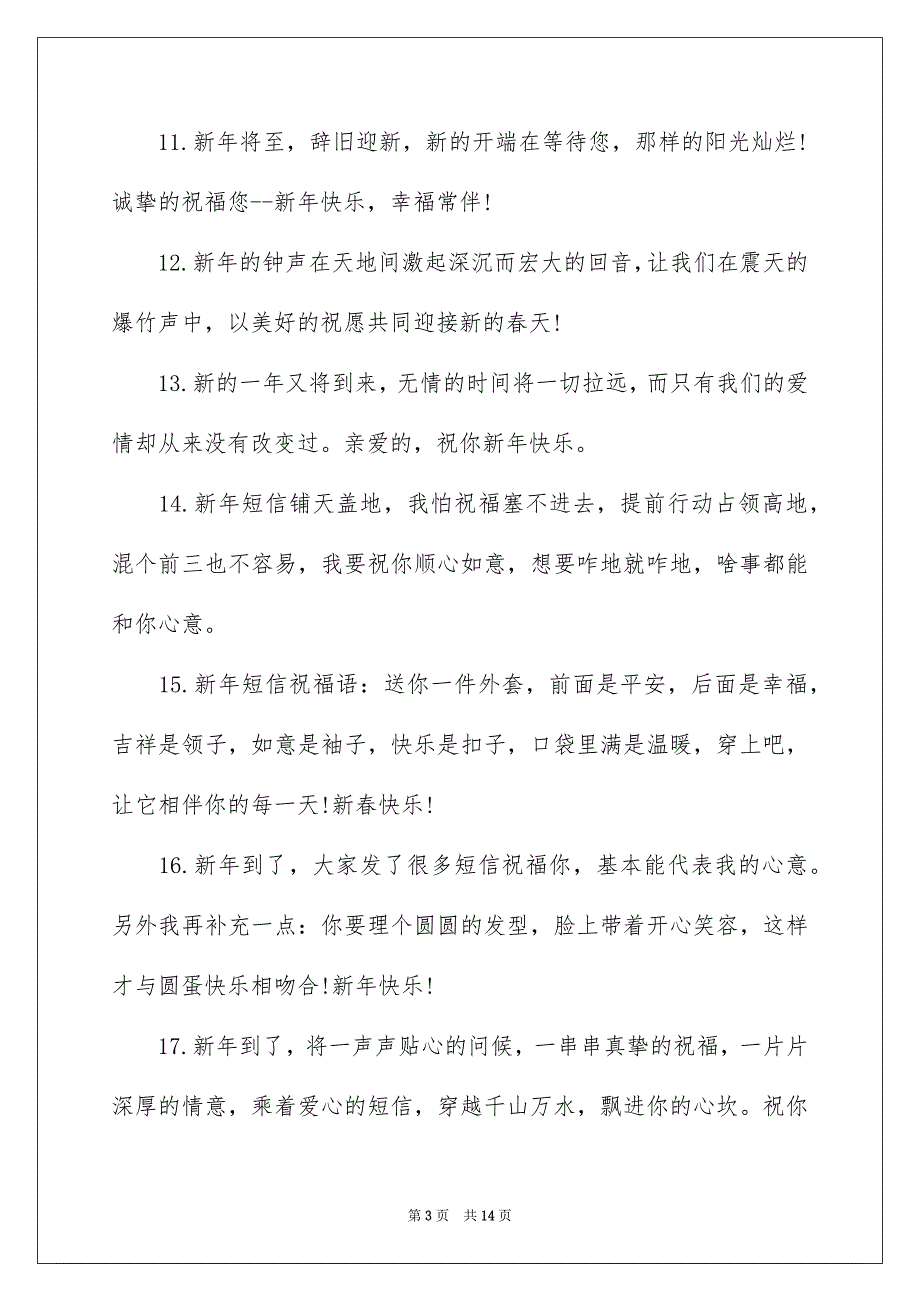 11.新年将至，辞旧迎新，新的开端在等待您，那样的阳光灿烂!
诚挚的祝福您--新年快乐，幸福常伴!
12.新年的钟声在天地间激起深沉而宏大的回音,让我们在震天的
爆竹声中，以美好的祝愿共同迎接新的春天!
13.新的一年又将到来，无情的时间将一切拉远，而只有我们的爱
情却从来没有改变过。亲爱的，祝你新年快乐。
14.新年短信铺天盖地，我怕祝福塞不进去，提前行动占领高地，
混个前三也不容易，我要祝你顺心如意，想要咋地就咋地，啥事都能
和你心意。
15.新年短信祝福语：送你一件外套，前面是平安，后面是幸福，
吉祥是领子，如意是袖子，快乐是扣子，口袋里满是温暖，穿上吧，
让它相伴你的每一天!新春快乐!
16.新年到了，大家发了很多短信祝福你，基本能代表我的心意。
另外我再补充一点：你要理个圆圆的发型，脸上带着开心笑容，这样
才与圆蛋快乐相吻合!新年快乐!
17.新年到了，将一声声贴心的问候，一串串真挚的祝福，一片片
深厚的情意，乘着爱心的短信，穿越千山万水，飘进你的心坎。祝你
第 3 页 共 14 页